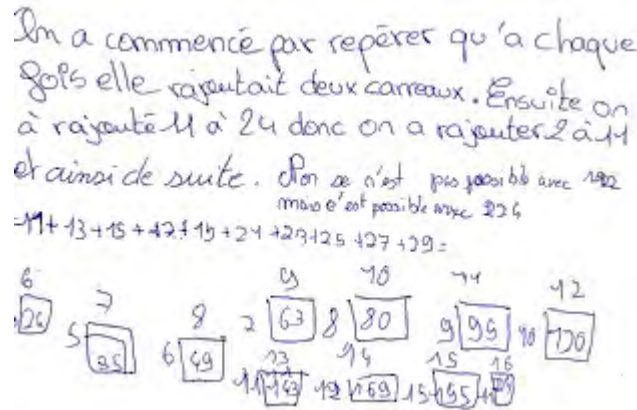 On a commencé par repérer qu'a chaque
fois elle rajoutait deux carreaux. Ensuite on
à rajouté 11 à 24 donc on a rajouter 2 à 11
et ainsi de suite. Non se n'est pas possible avec 192
mais c'est possible avec 224
=11+13+15+17+19+21+23+25+27+29=
6 7 8 9 10 11 12
24 5 35 6 49 7 63 8 80 9 99 10 120
13 14 15 16
11 143 12 169 13 195